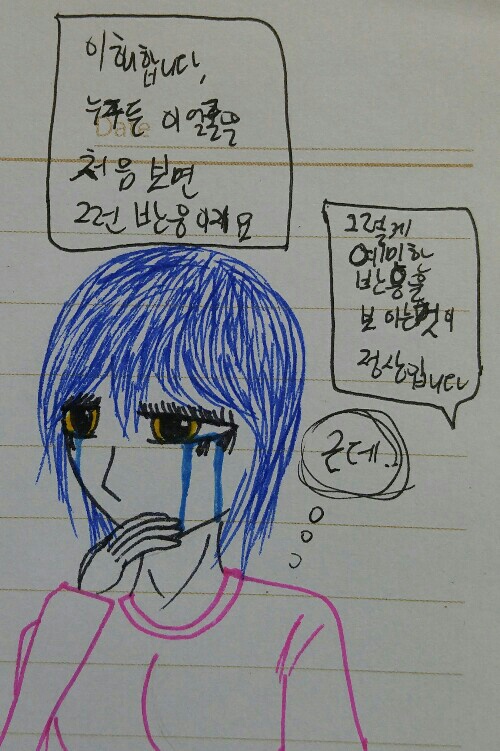 이해합니다,
누구든 이 얼굴을
Date
처음 보면
그런 반응이래요
그렇게
예민한
반응을
보이는것이
정상입니다
근데..